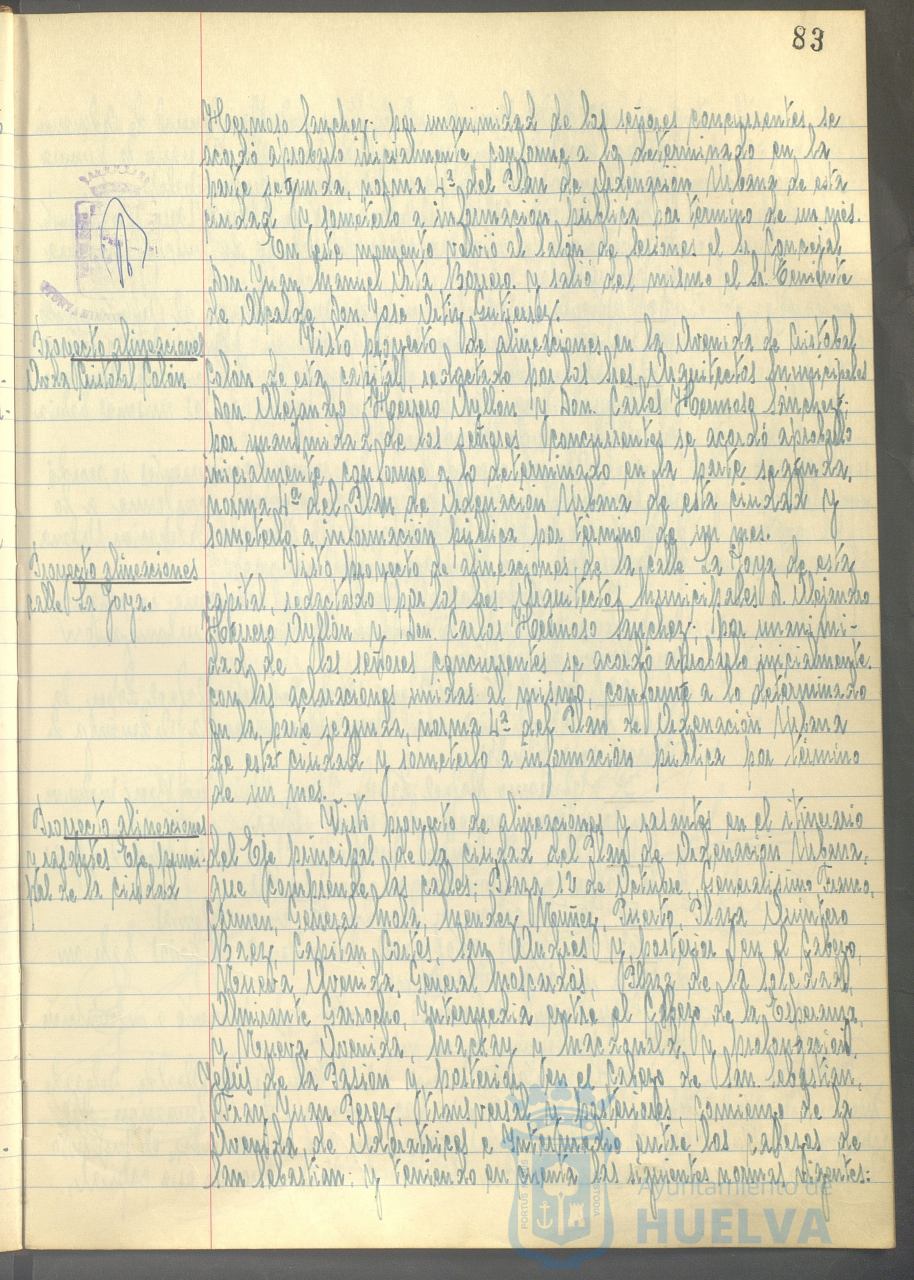 83
Hermoso Sanchez; por unanimidad de los señores concurrentes, se
acordó aprobarlo inicialmente, conforme a lo determinado en la
parte segunda, norma 4ª del Plan de Ordenación Urbana de esta
ciudad y someterlo a información pública por término de un mes.
En este momento volvió al Salón de Sesiones el Sr. Concejal
Don Juan Manuel Orta Borrero y salió del mismo el Sr. Teniente
de Alcalde Don José Ortiz Gutierrez.
Proyecto alineaciones
Avda Cristobal Colón
Visto proyecto de alineaciones en la Avenida de Cristobal
Colón de esta capital, redactado por los Sres Arquitectos Municipales
Don Alejandro Herrero Ayllón y Don Carlos Hermoso Sanchez;
por unanimidad de los señores concurrentes se acordó aprobarlo
inicialmente conforme a lo determinado en la parte segunda,
norma 4ª del Plan de Ordenación Urbana de esta ciudad y
someterlo a información pública por término de un mes.
Proyecto alineaciones
calle La Joya.
Visto proyecto de alineaciones de la calle La Joya de esta
capital, redactado por los Sres Arquitectos Municipales D. Alejandro
Herrero Ayllón y Don Carlos Hermoso Sanchez; por unanimi-
dad de los señores concurrentes se acordó aprobarlo inicialmente
con las aclaraciones unidas al mismo, conforme a lo determinado
en la parte segunda, norma 4ª del Plan de Ordenación Urbana
de esta ciudad y someterlo a información pública por término
de un mes.
Proyecto alineaciones
y rasantes Eje princi-
pal de la ciudad
Visto proyecto de alineaciones y rasantes en el itinerario
del Eje principal de la ciudad del Plan de Ordenación Urbana,
que comprende las calles; Plaza 12 de Octubre, Generalisimo Franco,
Carmen, General Mola, Mendez Nuñez, Puerto, Plaza Quintero
Baez, Capitan Cortés, San Andrés y posterior en el Cabezo,
Nueva Avenida, General Moscardós, Plaza de la Soledad,
Almirante Garrocho, Intermedia entre el Cabezo de la Esperanza,
y Nueva Avenida, Mackay y Macdonald y prolongación
Jesús de la Pasión y posterior en el Cabezo de San Sebastian,
Fray Juan Perez, transversal y posteriores, comienzo de la
Avenida de Adoratrices e Intermedio entre los cabezos de
San Sebastian; y teniendo en cuenta las siguientes normas vigentes:
Ayuntamiento de
HUELVA